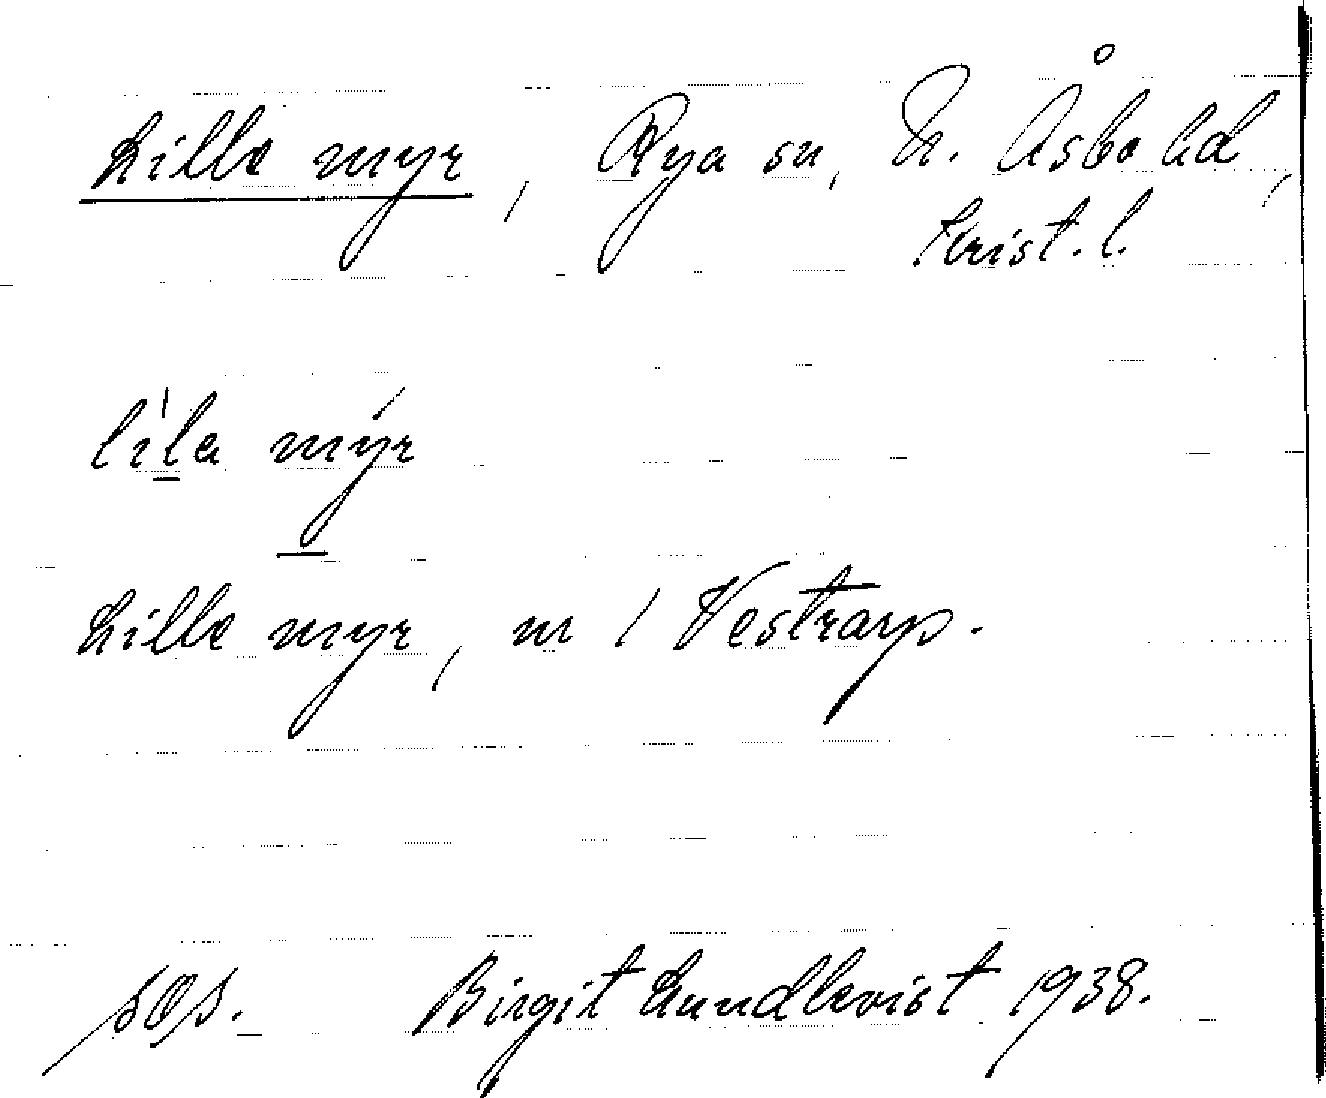 Lille myr, Rya sn, N. Åsbo hd,
Krist. l.
lila myr
Lille myr, nr / Vestrarp.
sOs. Birgit Lundkvist 1938.